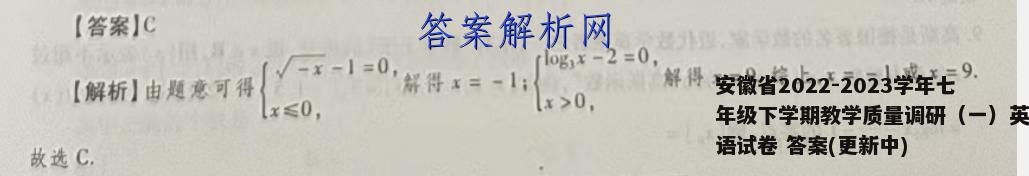 【答案】C
答案解析网
【解析】由题意可得{√-x-1=0, x≤0, 解得 x=-1; {log₃x-2=0, x>0, 解得 x=9. 综上, x=-1或 x=9.
安徽省2022-2023学年七
年级下学期教学质量调研（一）英
语试卷 答案(更新中)
故选 C.